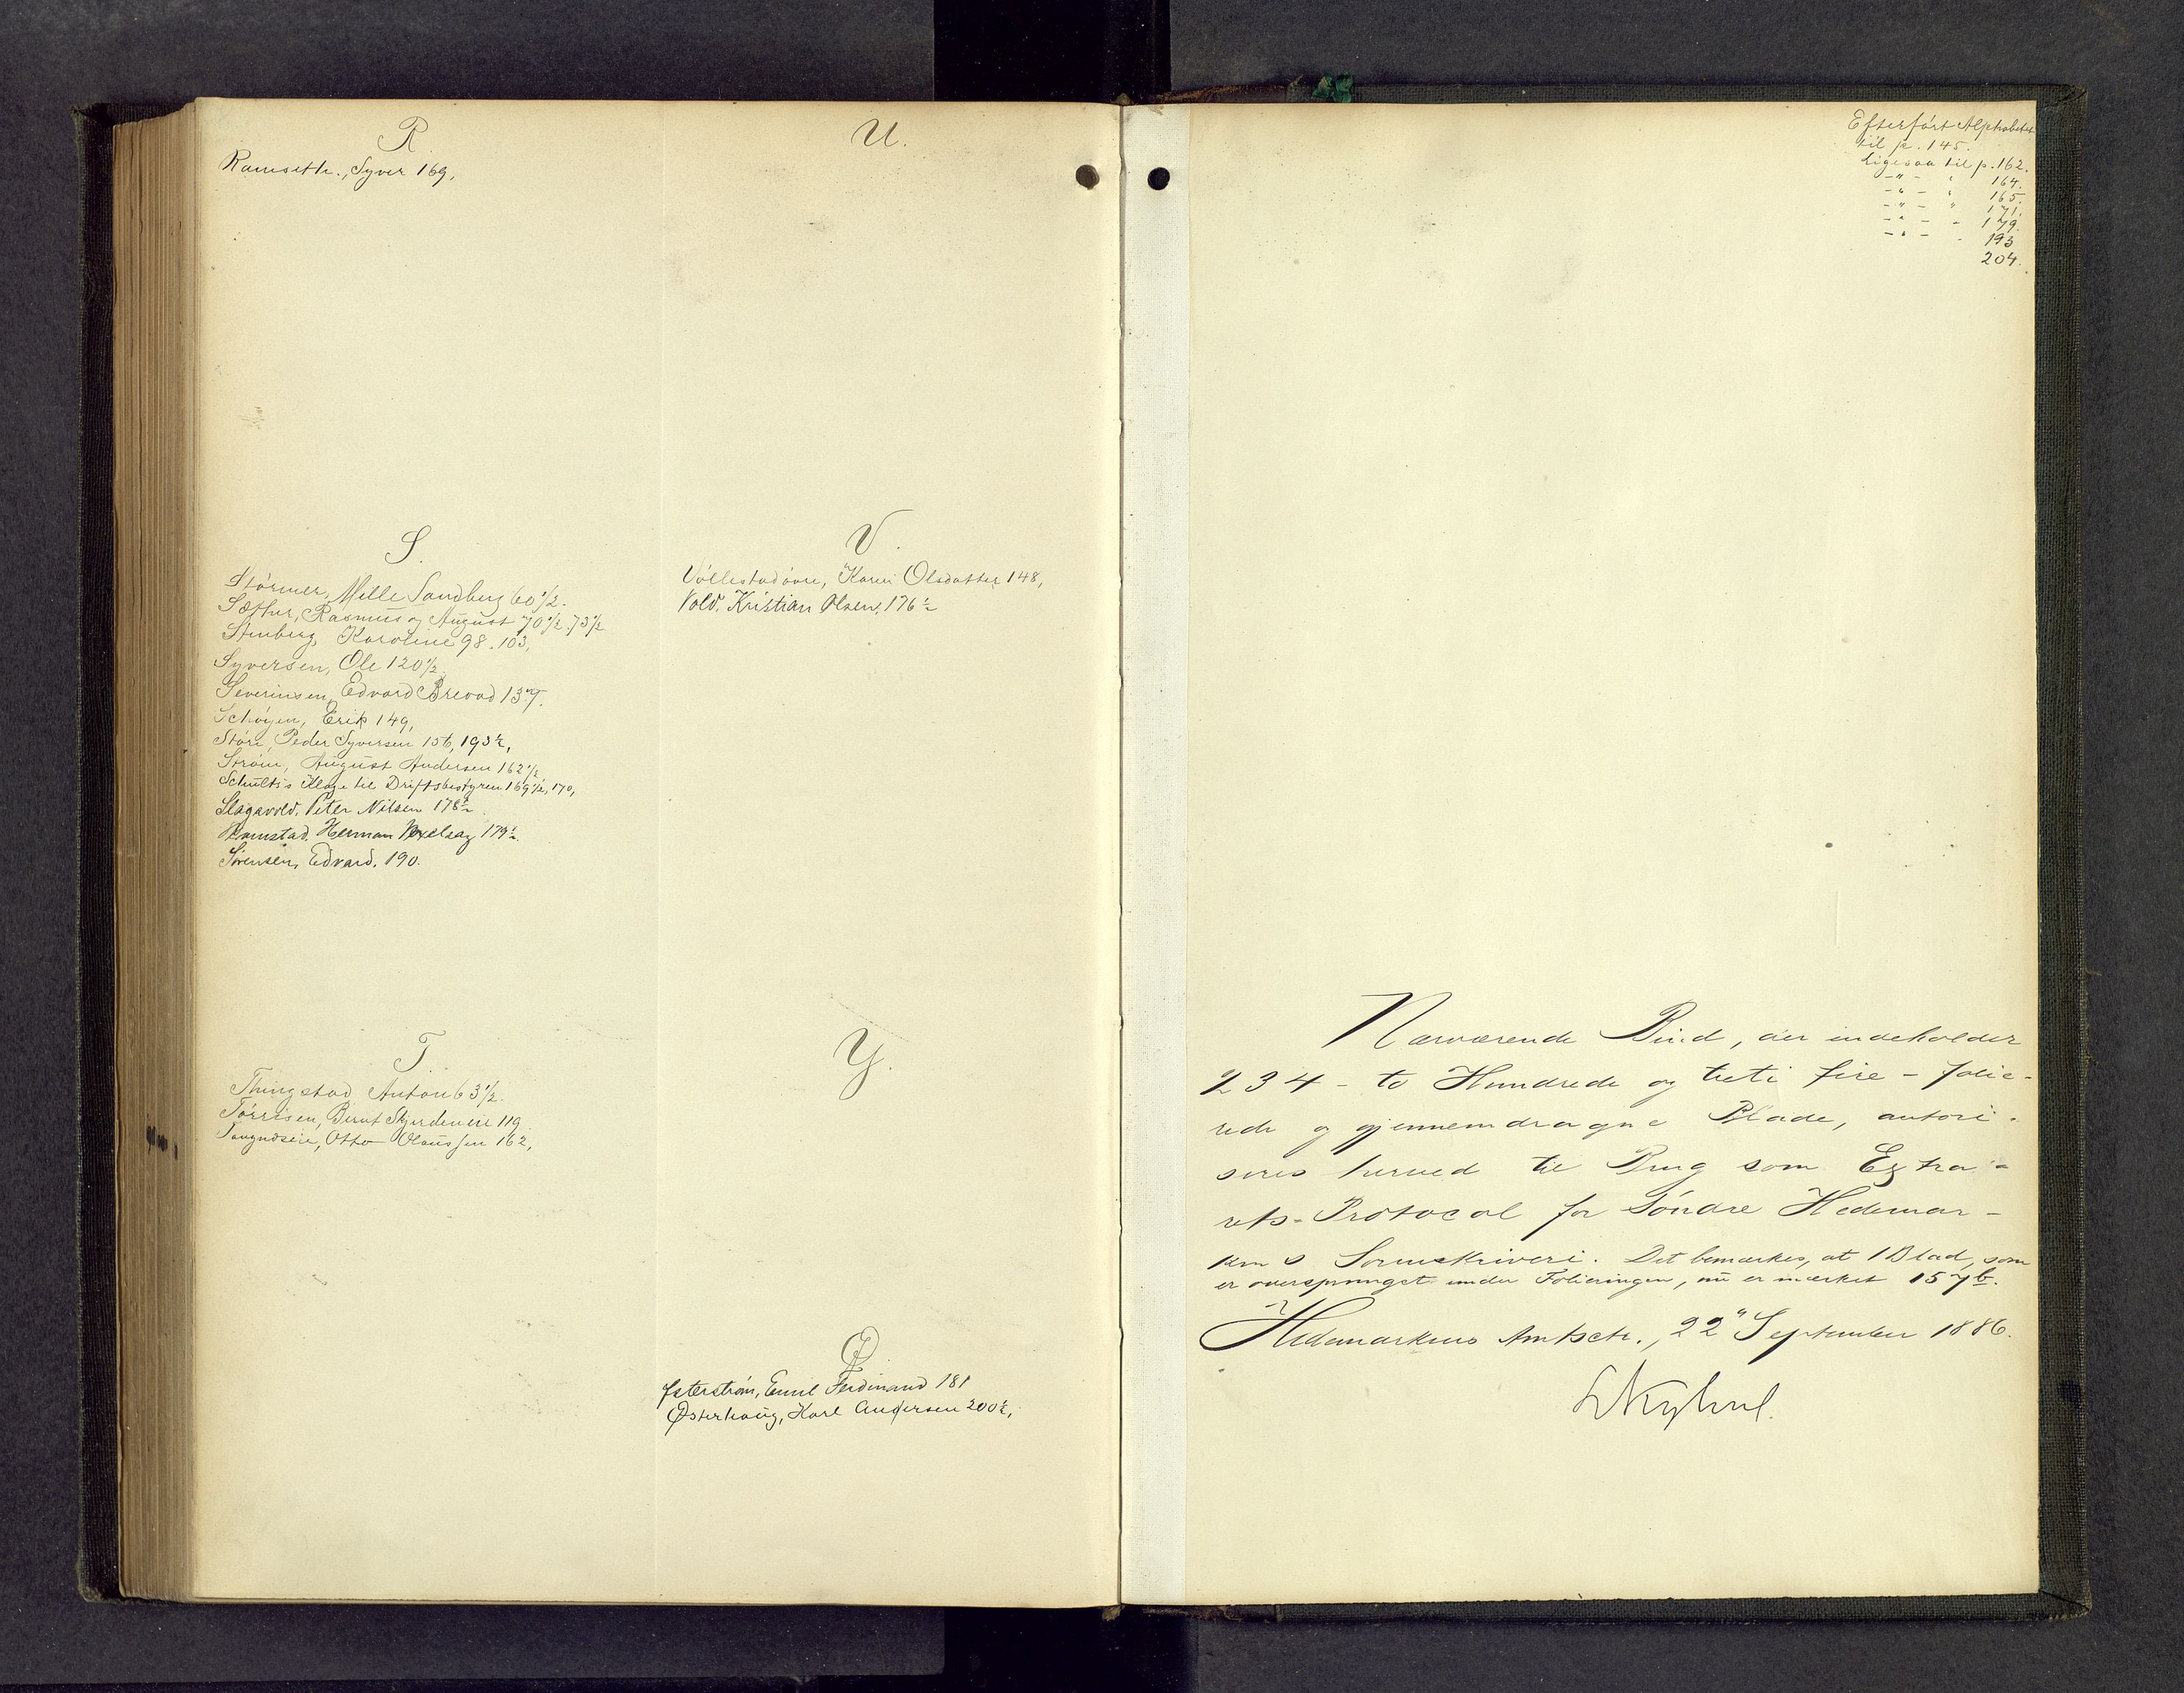 R.
Ramseth., Syver 169,
S.
Störmer, Mille Sandberg 60 1/2.
Sæther, Rasmus og August 70 1/2. 73 1/2
Stenberg, Karoline 98. 103,
Syversen, Ole 120 1/2
Severinsen, Edvard Brevad 137.
Schøyen, Erik 149,
Störe, Peder Syversen 156, 193 1/2,
Ström, August Andersen 162 1/2
Schultz's Klage til Driftsbestyren 169 1/2, 170,
Slagsvold, Peter Nilsen 178 1/2
Herman 179 1/2
Sørensen, Edvard. 190.
T.
Thingstad Anton 63 1/2.
Törrisen, Bernt Skjerdeneie 119
Otto Olaussen 162,
U.
V.
Karen Olsdatter 148,
Vold, Kristian Olsen, 176 1/2
Y.
Ø
Østerström, Emil Ferdinand 181
Østerhaug, Karl Andersen 200 1/2,
Efterført Alphabetet
til p. 145.
Ligesaa til p. 162.
-"- " 164.
-"- " 165.
-"- " 171.
-"- - 179.
-"- - 193
204.
Nærværende Bind, der indeholder
234 - to Hundrede og treti fire - folie-
rede og gjennemdragne Blade, autori-
seres herved til Brug som Extra-
rets-Protocol for Söndre Hedemar-
kens Sorenskriveri. Det bemærkes, at 1 Blad, som
er oversprunget under Folieringen, nu er mærket 157b.
Hedemarkens Amtsctr., 22" September 1886.